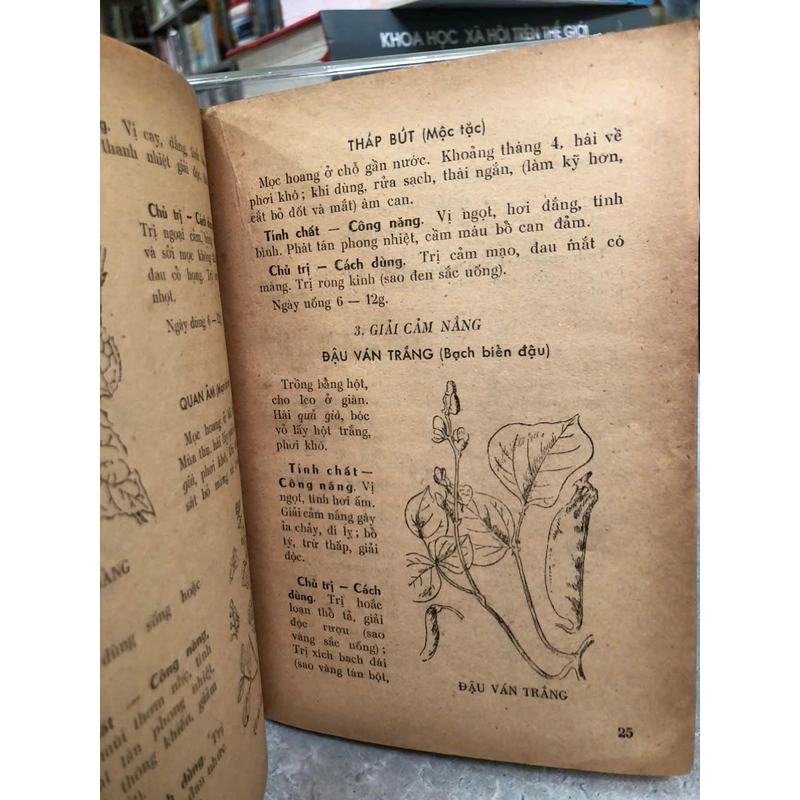 KHOA HỌC XÃ HỘI TRÊN THẾ GIỚI
Vị cay, đắng
thanh nhiệt giải độc
Chủ trị – Cách
Trị ngoại cảm,
và sởi mọc không
đau cổ họng. Trị
nhọt.
Ngày dùng 6 –
QUAN ÂM
Mọc hoang ở
Mùa thu, hái lấy
già, phơi khô,
sát bỏ
dùng sống hoặc
– Công năng.
thơm nhẹ, tính
tán phong nhiệt,
thông khiếu, giảm
dùng. Trị
đau nhức
THÁP BÚT (Mộc tặc)
Mọc hoang ở chỗ gần nước. Khoảng tháng 4, hái về
phơi khô ; khi dùng, rửa sạch, thái ngắn, (làm kỹ hơn,
cắt bỏ đốt và mắt) âm can.
Tính chất – Công năng. Vị ngọt, hơi đắng, tính
bình. Phát tán phong nhiệt, cầm máu bồ can đảm.
Chủ trị – Cách dùng. Trị cảm mạo, đau mắt có
màng. Trị rong kinh (sao đen sắc uống).
Ngày uống 6 – 12g.
3. GIẢI CẢM NẮNG
ĐẬU VÁN TRẮNG (Bạch biển đậu)
Trồng bằng hột,
cho leo ở giàn.
Hái quả già, bóc
vỏ lấy hột trắng,
phơi khô.
Tính chất –
Công năng. Vị
ngọt, tính hơi ấm.
Giải cảm nắng gây
ỉa chảy, đi lỵ ; bồ
tỳ, trừ thấp, giải
độc.
Chủ trị – Cách
dùng. Trị hoắc
loạn thổ tả, giải
độc rượu (sao
vàng sắc uống) ;
Trị xích bạch đái
(sao vàng tán bột,
ĐẬU VÁN TRẮNG
25